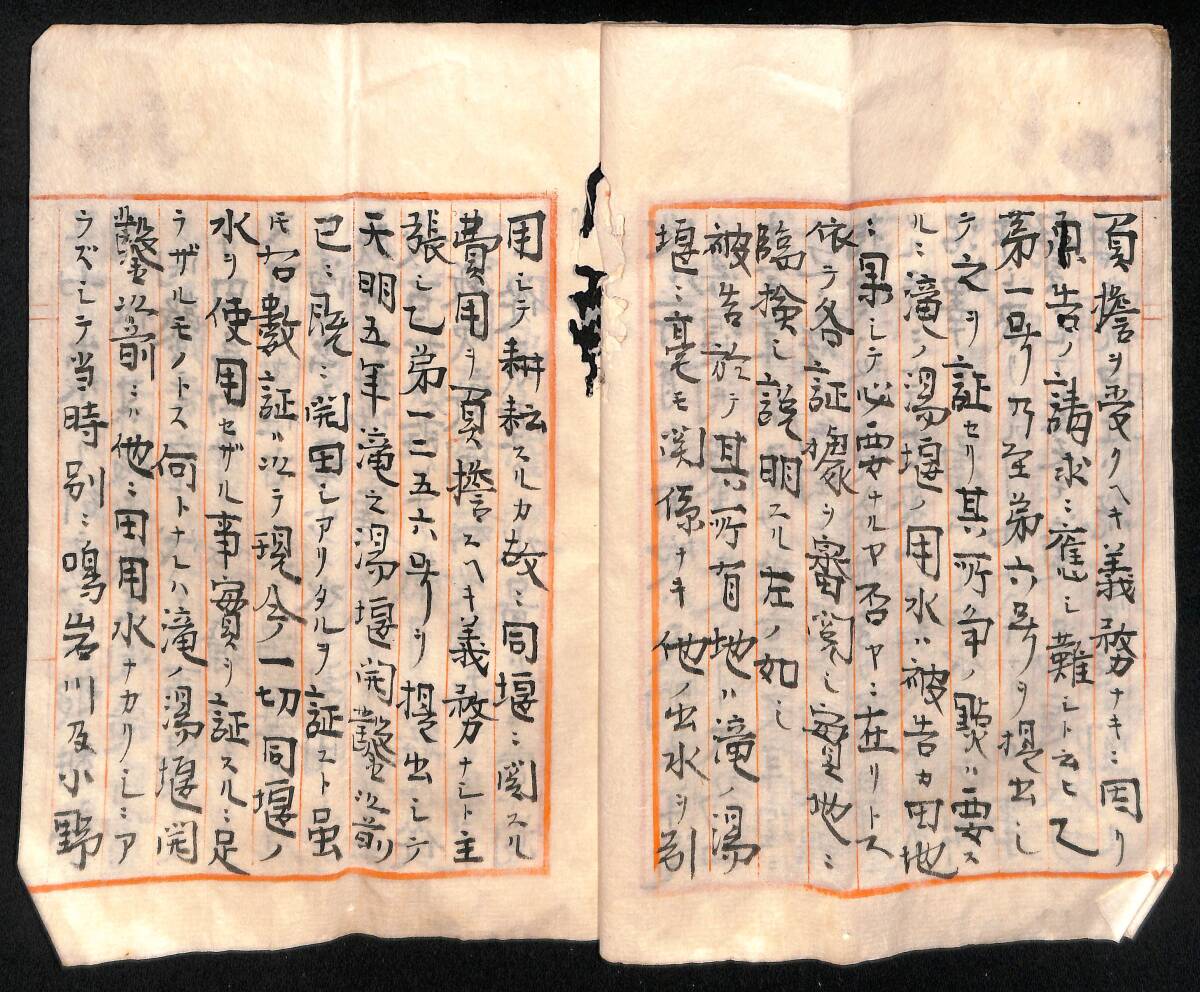 負擔ヲ受クヘキ義務ナキニ因リ
原告ノ請求ニ應シ難シト云ヒ乙
第一号乃至第六号ヲ提出シ
テ之ヲ証セリ其所争ノ點ハ要ス
ルニ滝ノ湯堰ノ用水ハ被告カ田地
ニ果シテ必要ナルヤ否ヤニ在リトス
依テ各証據ヲ審閲シ實地ニ
臨撿シ説明スル左ノ如シ
被告於テ其所有地ハ滝ノ湯
堰ニ毫モ関係ナキ他ノ出水ヲ引
用シテ耕耘スルカ故ニ同堰ニ関スル
費用ヲ負擔スヘキ義務ナシト主
張シ乙第一二五六号ヲ提出シテ
天明五年滝之湯堰開鑿以前
已ニ既ニ開田シアリタルヲ証スト虽
モ右數証ハ以テ現今一切同堰ノ
水ヲ使用セザル事實ヲ証スルニ足
ラザルモノトス何トナレハ滝ノ湯堰開
鑿以前ニハ他ニ田用水ナカリシニア
ラズシテ当時別ニ鳴岩川及小野